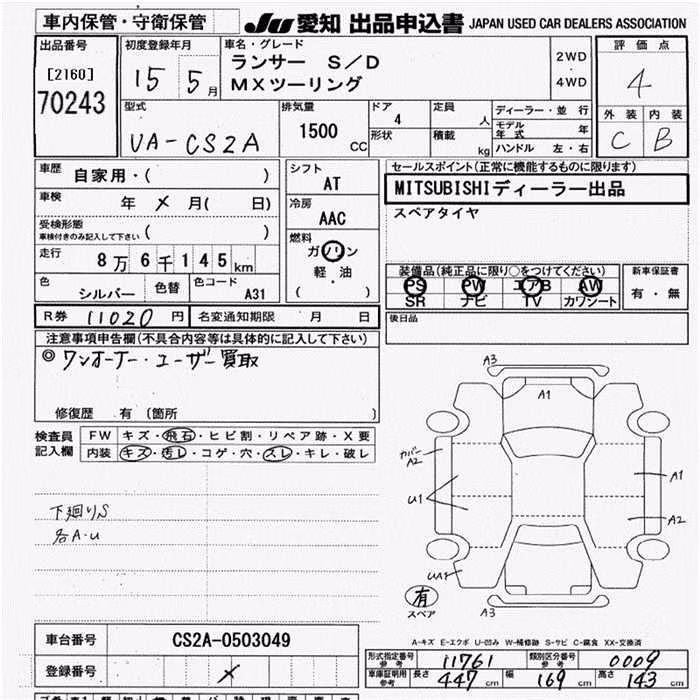 車内保管・守衛保管
JU 愛知 出品申込書 JAPAN USED CAR DEALERS ASSOCIATION
出品番号
[2160]
70243
初度登録年月
15 5月
車名・グレード
ランサー S/D
MXツーリング
2WD
・
4WD
評価点
4
外装 内装
C B
型式
UA-CS2A
排気量
1500
CC
ドア
4
形状
定員
人
積載
kg
ディーラー・並行
モデル年式 年
ハンドル 左・右
車歴
自家用・( )
車検
年 × 月( 日)
受検形態
車検付きのみ記入して下さい ( )
走行
8万6千145km
色
シルバー
色替
色コード
A31
シフト
AT
冷房
AAC
燃料
ガソリン
軽・油
( )
セールスポイント(正常に機能するものに限ります)
MITSUBISHIディーラー出品
スペアタイヤ
装備品(純正品に限り○をつけてください)
PS PW エアB AW
SR ナビ TV カワシート
新車保証書
有・無
R券 11020 円
名変通知期限 月 日
後日品
注意事項申告欄(不具合内容等は具体的に記入して下さい)
◎ワンオーナー・ユーザー買取
修復歴 有 (箇所 )
検査員
記入欄
FW キズ・飛石・ヒビ割・リペア跡・X要
内装 キズ・汚レ・コゲ・穴・スレ・キレ・破レ
下廻りS
各A・U
A3
A1
カバー
A2
U1
A1
A2
UA1
A3
有
スペア
A-キズ E-エクボ U-凹み W-補修跡 S-サビ C-腐食 XX-交換済
車台番号
CS2A-0503049
登録番号
×
形式指定番号
参考
11761
類別区分番号
参考
0009
車庫証明用
参考
長さ 447 cm 幅 169 cm 高さ 143 cm